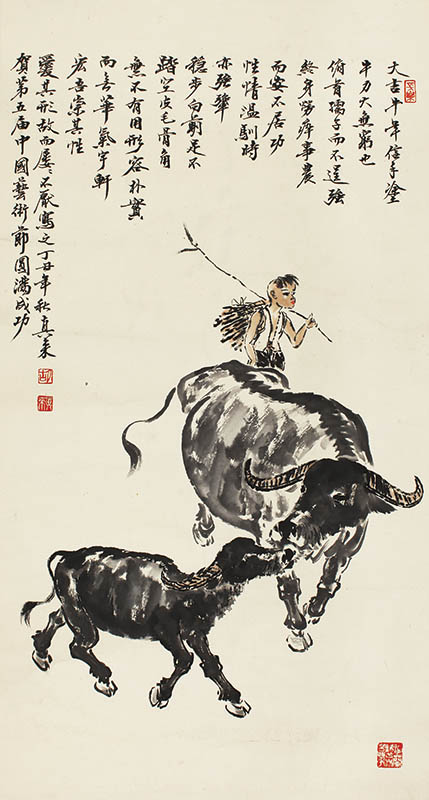 大吉牛年信手塗
牛力大無窮也
俯首孺子而不逞強
終身勞瘁事農
而安不居功
性情溫馴時
亦強犟
穩步向前足不
踏空皮毛骨角
無不有用形容朴實
而无華氣宇軒
宏吾崇其性
愛其形故而屢々不厭寫之丁丑年秋真来
賀第五届中國藝術節圓滿成功